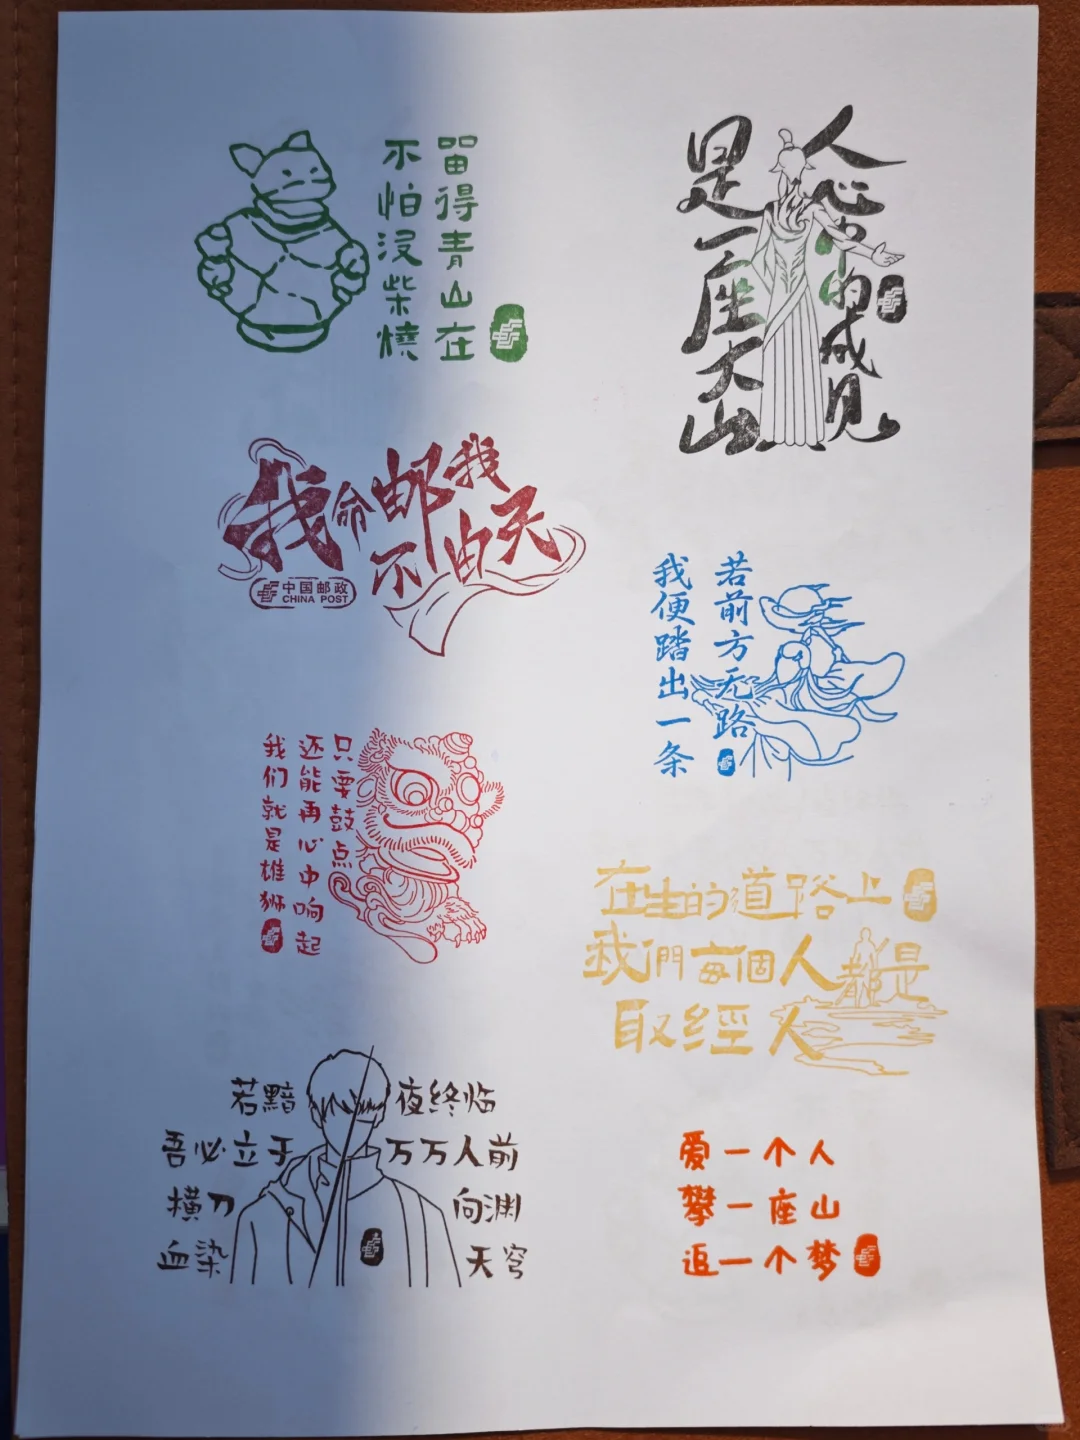 畱得青山在
不怕沒柴燒
人心中的成见
是一座大山
我命邮我
不由天
中国邮政
CHINA POST
若前方无路
我便踏出一条
只要鼓点
还能再心中响起
我们就是雄狮
在生的道路上
我們每個人都是
取經人
若黯夜终临
吾必立于万万人前
横刀向渊
血染天穹
爱一个人
攀一座山
追一个梦